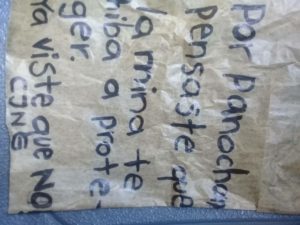 Por panochon
pensaste que
la mina te
iba a prote-
ger.
Ya viste que NO
CJNG